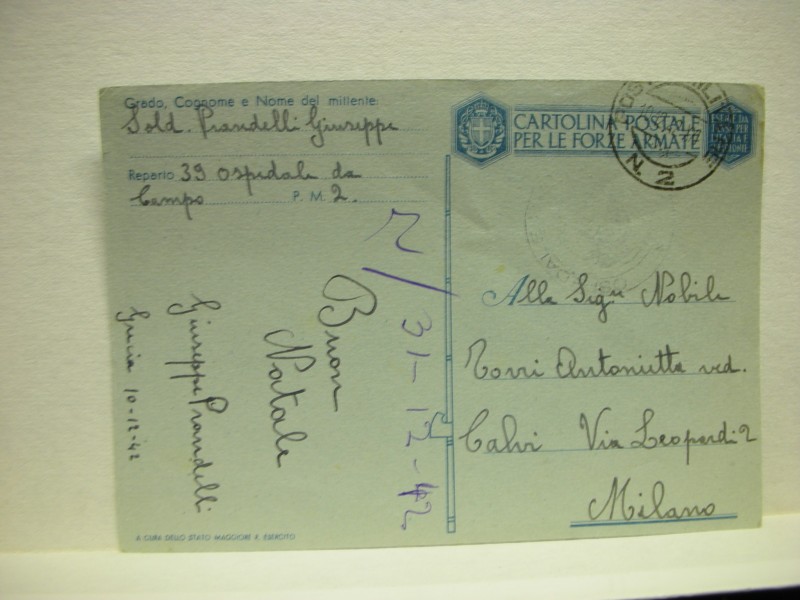 Grado, Cognome e Nome del mittente
Sold. Prandelli Giuseppe
Reparto 39 Ospedale da
Campo P. M. 2.
CARTOLINA POSTALE
PER LE FORZE ARMATE
N. 2
Alla Sigra Nobile
Torri Antonietta ved.
Calvi Via Leopardi 2
Milano
Buon
Natale
Giuseppe Prandelli
Grecia 10-12-42
R/31-12-42
A CURA DELLO STATO MAGGIORE R. ESERCITO